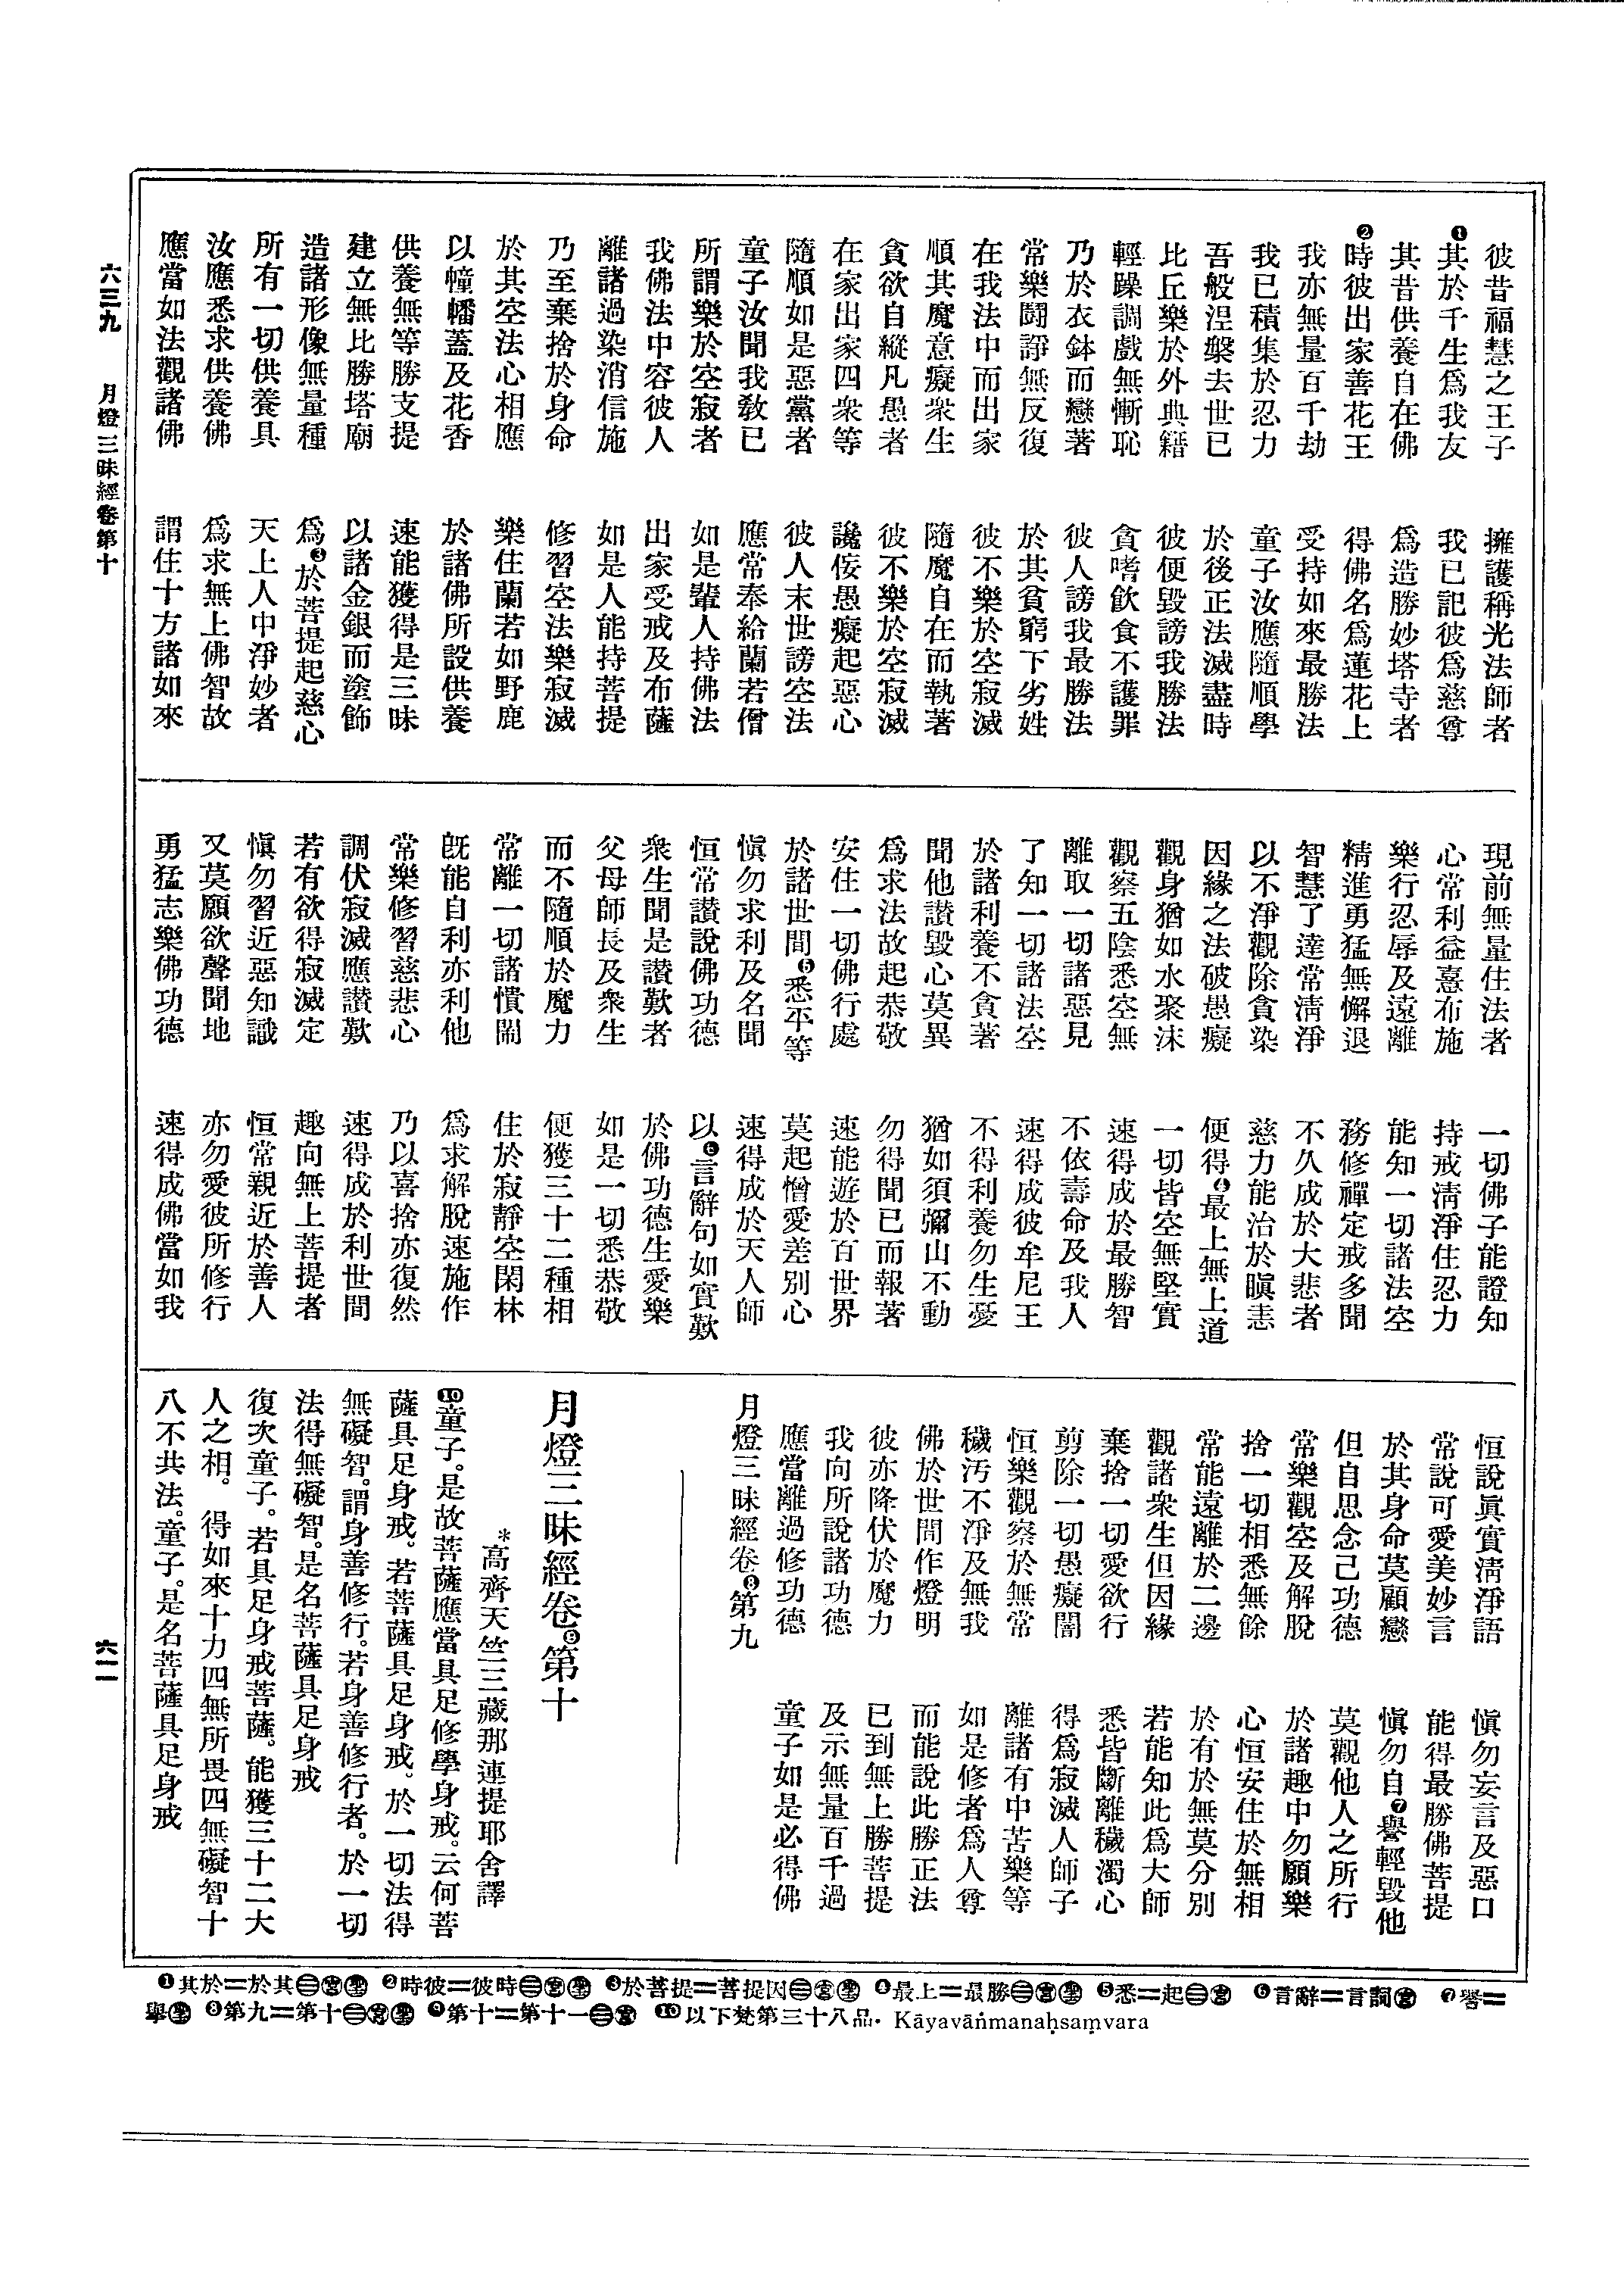 彼昔福慧之王子　擁護稱光法師者
❶其於千生爲我友　我已記彼爲慈尊
其昔供養自在佛　爲造勝妙塔寺者
❷時彼出家善花王　得佛名爲蓮花上
我亦無量百千劫　受持如來最勝法
我已積集於忍力　童子汝應隨順學
吾般涅槃去世已　於後正法滅盡時
比丘樂於外典籍　彼便毀謗我勝法
輕躁調戲無慚恥　貪嗜飮食不護罪
乃於衣鉢而戀著　彼人謗我最勝法
常樂鬪諍無反復　於其貧窮下劣姓
在我法中而出家　彼不樂於空寂滅
順其魔意癡衆生　隨魔自在而執著
貪欲自縱凡愚者　彼不樂於空寂滅
在家出家四衆等　讒佞愚癡起惡心
隨順如是惡黨者　彼人末世謗空法
童子汝聞我教已　應常奉給蘭若僧
所謂樂於空寂者　如是輩人持佛法
我佛法中容彼人　出家受戒及布薩
離諸過染消信施　如是人能持菩提
乃至棄捨於身命　修習空法樂寂滅
於其空法心相應　樂住蘭若如野鹿
以幢幡蓋及花香　於諸佛所設供養
供養無等勝支提　速能獲得是三昧
建立無比勝塔廟　以諸金銀而塗飾
造諸形像無量種　爲❸於菩提起慈心
所有一切供養具　天上人中淨妙者
汝應悉求供養佛　爲求無上佛智故
應當如法觀諸佛　謂住十方諸如來
現前無量住法者　一切佛子能證知
心常利益憙布施　持戒淸淨住忍力
樂行忍辱及遠離　能知一切諸法空
精進勇猛無懈退　務修禪定戒多聞
智慧了達常淸淨　不久成於大悲者
以不淨觀除貪染　慈力能治於瞋恚
因緣之法破愚癡　便得❹最上無上道
觀身猶如水聚沫　一切皆空無堅實
觀察五陰悉空無　速得成於最勝智
離取一切諸惡見　不依壽命及我人
了知一切諸法空　速得成彼牟尼王
於諸利養不貪著　不得利養勿生憂
聞他讃毀心莫異　猶如須彌山不動
爲求法故起恭敬　勿得聞已而報著
安住一切佛行處　速能遊於百世界
於諸世間❺悉平等　莫起憎愛差別心
愼勿求利及名聞　速得成於天人師
恒常讃說佛功德　以❻言辭句如實歎
衆生聞是讃歎者　於佛功德生愛樂
父母師長及衆生　如是一切悉恭敬
而不隨順於魔力　便獲三十二種相
常離一切諸憒鬧　住於寂靜空閑林
既能自利亦利他　爲求解脫速施作
常樂修習慈悲心　乃以喜捨亦復然
調伏寂滅應讃歎　速得成於利世間
若有欲得寂滅定　趣向無上菩提者
愼勿習近惡知識　恒常親近於善人
又莫願欲聲聞地　亦勿愛彼所修行
勇猛志樂佛功德　速得成佛當如我
恒說眞實淸淨語　愼勿妄言及惡口
常說可愛美妙言　能得最勝佛菩提
於其身命莫顧戀　愼勿自❼譽輕毀他
但自思念己功德　莫觀他人之所行
常樂觀空及解脫　於諸趣中勿願樂
捨一切相悉無餘　心恒安住於無相
常能遠離於二邊　於有於無莫分別
觀諸衆生但因緣　若能知此爲大師
棄捨一切愛欲行　悉皆斷離穢濁心
剪除一切愚癡闇　得爲寂滅人師子
恒樂觀察於無常　離諸有中苦樂等
穢污不淨及無我　如是修者爲人尊
佛於世間作燈明　而能說此勝正法
彼亦降伏於魔力　已到無上勝菩提
我向所說諸功德　及示無量百千過
應當離過修功德　童子如是必得佛
月燈三昧經卷❽第九
月燈三昧經卷❾第十
＊高齊天竺三藏那連提耶舍譯
❿童子。是故菩薩應當具足修學身戒。云何菩
薩具足身戒。若菩薩具足身戒。於一切法得
無礙智。謂身善修行。若身善修行者。於一切
法得無礙智。是名菩薩具足身戒
復次童子。若具足身戒菩薩。能獲三十二大
人之相。得如來十力四無所畏四無礙智十
八不共法。童子。是名菩薩具足身戒
六三九　月燈三昧經卷第十　六一一
❶其於＝於其㊂宮聖　❷時彼＝彼時㊂宮聖　❸於菩提＝菩提因㊂宮聖　❹最上＝最勝㊂宮聖　❺悉＝起㊂宮　❻言辭＝言詞宮　❼譽＝
擧聖　❽第九＝第十㊂宮聖　❾第十＝第十一㊂宮　❿以下梵第三十八品．Kāyavāṅmanaḥsaṃvara